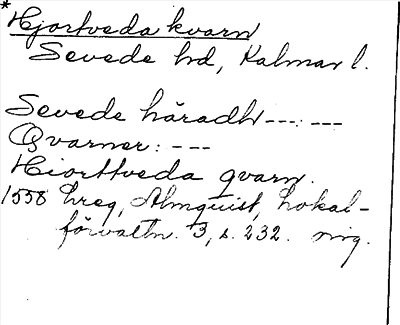 *
Hjortveda kvarn
Sevede hd, Kalmar l.
Sevede häradh ---: ---
Qvarner: ---
Hiorttveda qvarn.
1558 hreg, Almquist, Lokal-
förvaltn. 3, s. 232.